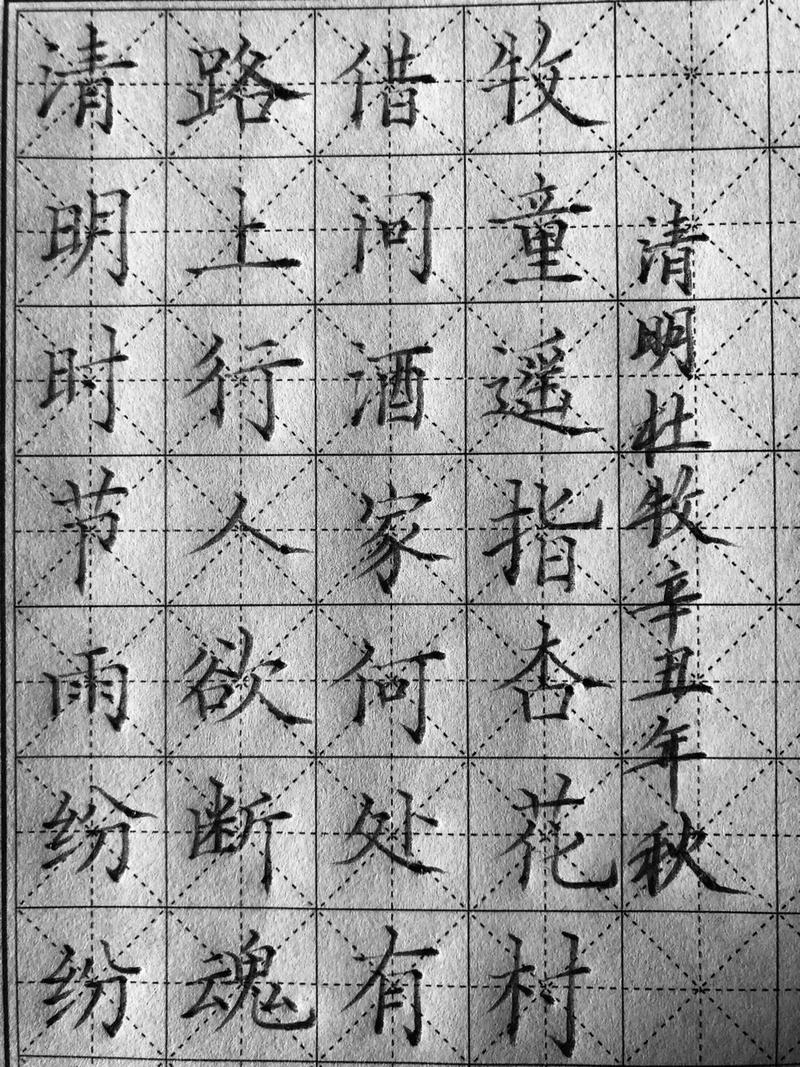 清明时节雨纷纷
路上行人欲断魂
借问酒家何处有
牧童遥指杏花村
清明杜牧辛丑年秋